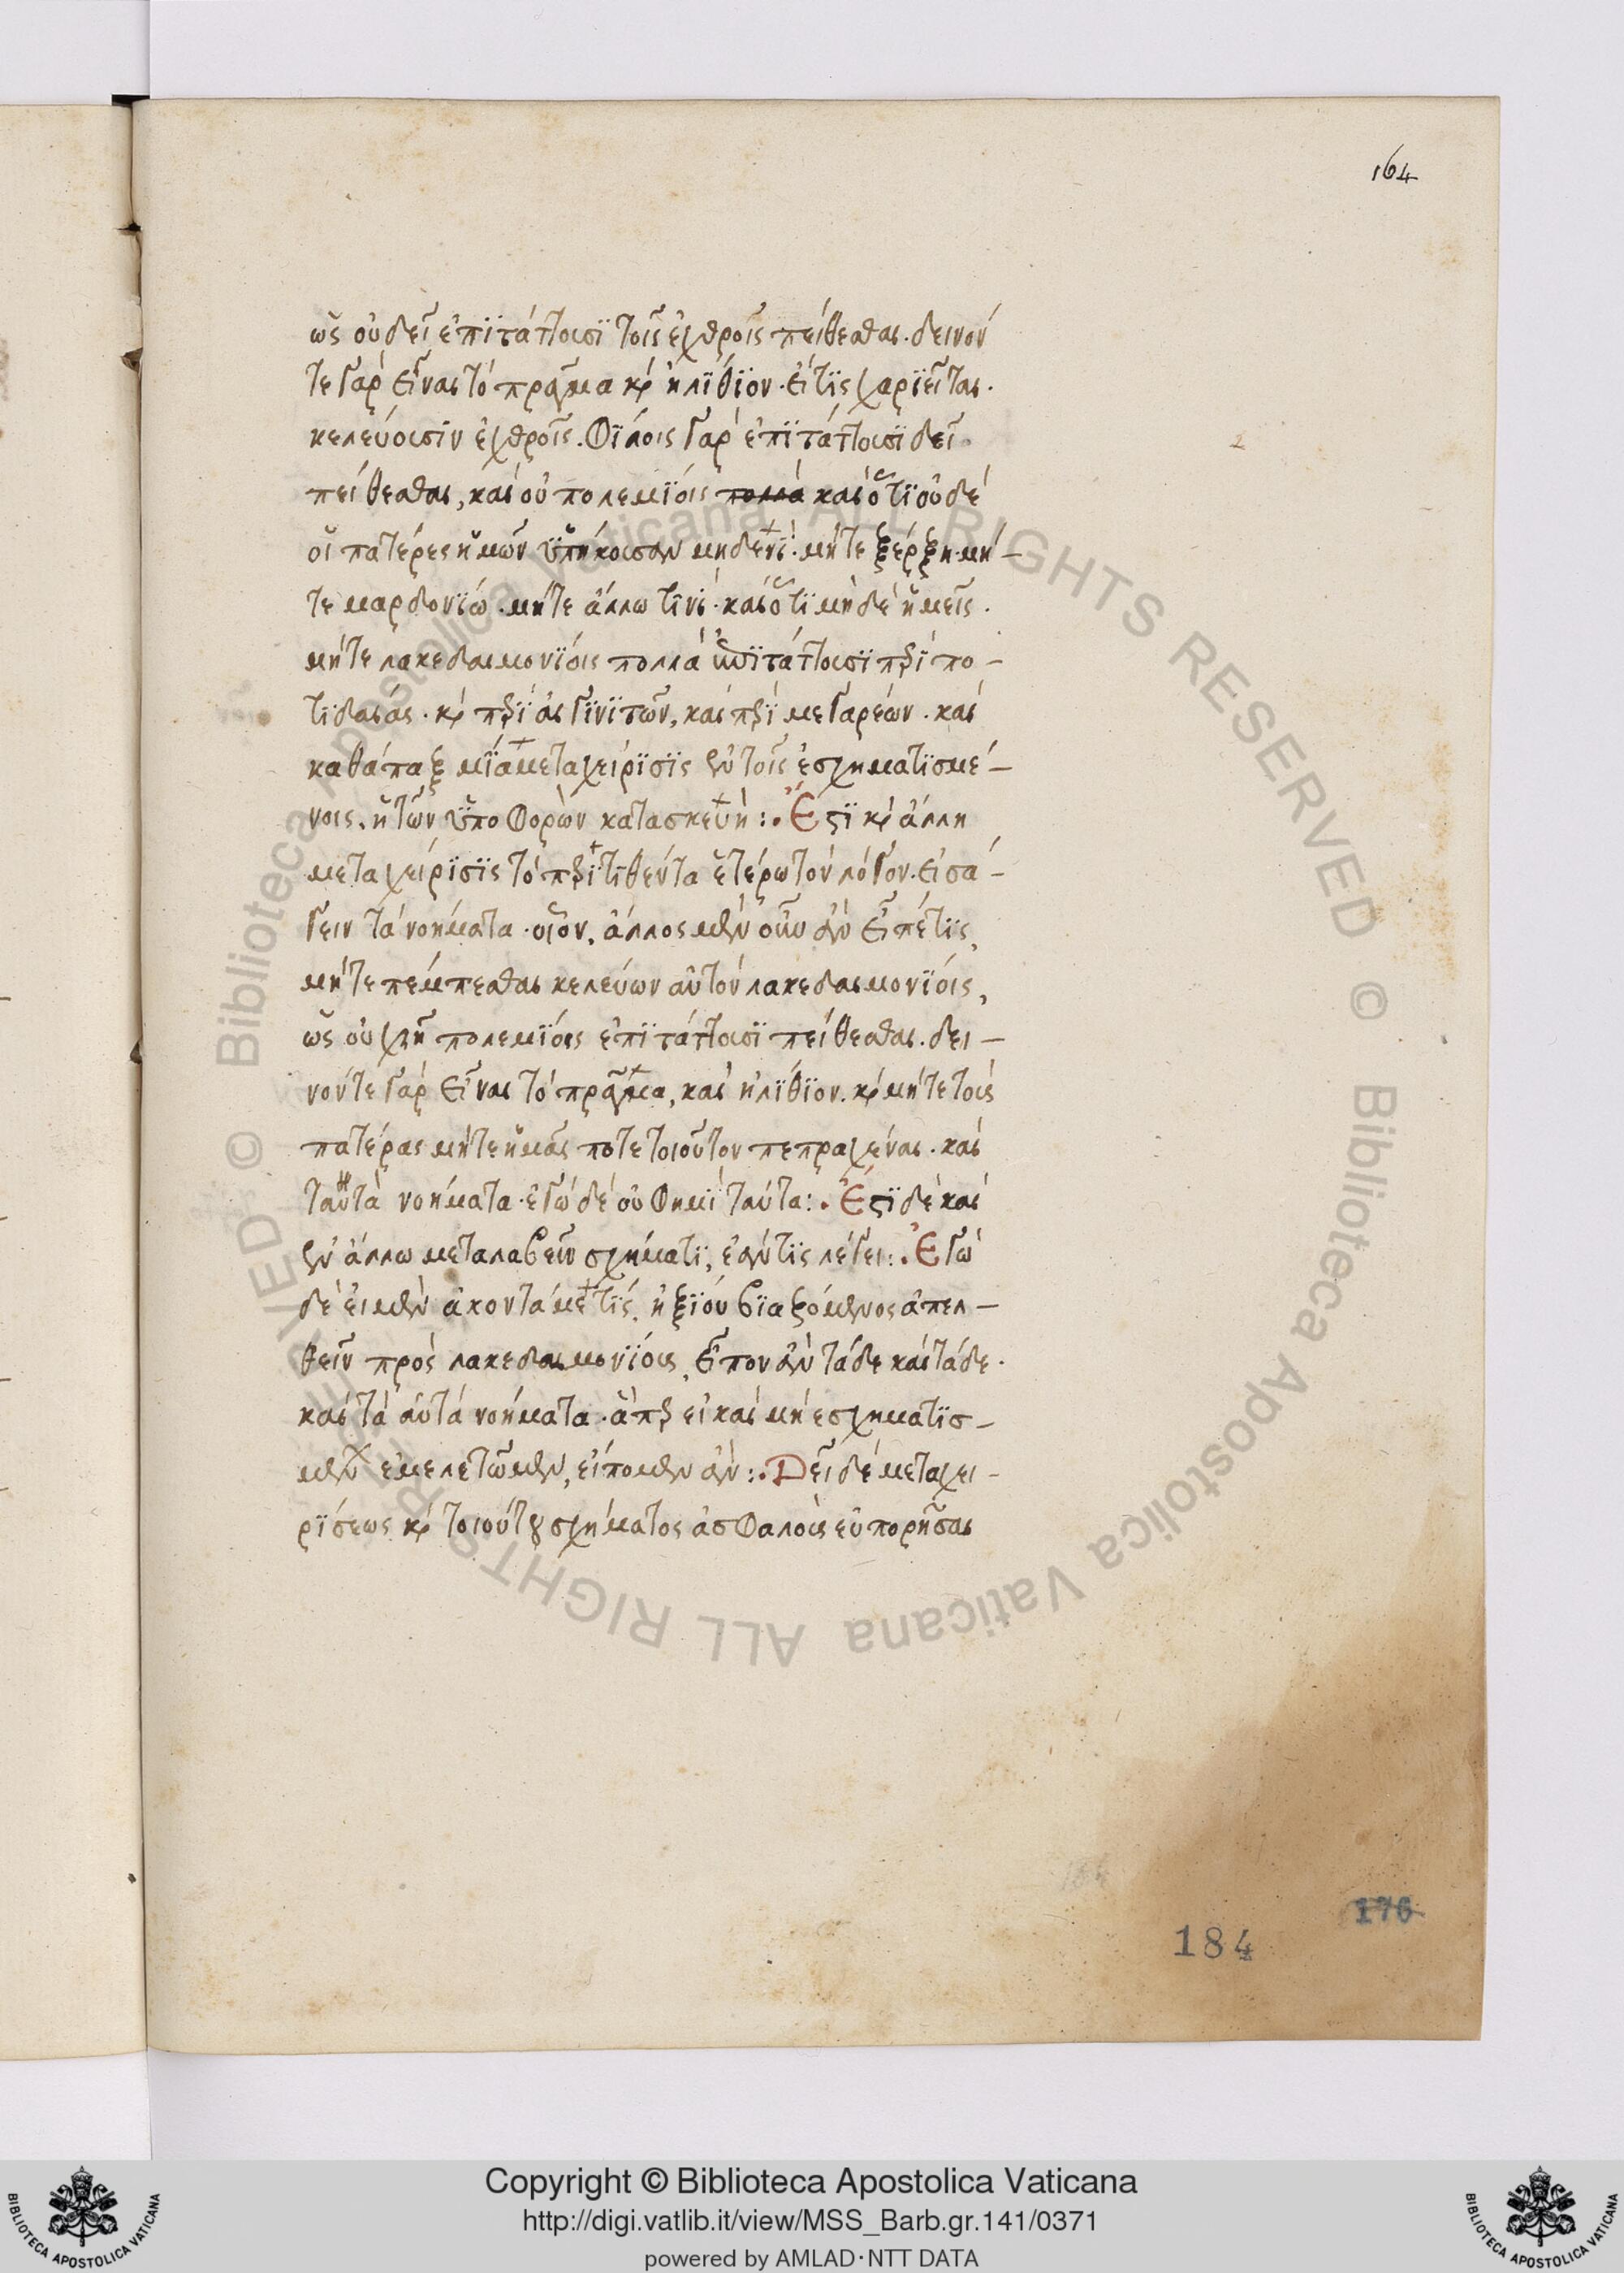 164
ὡς οὐ δεῖ ἐπϊτάττουσϊ τοῖς ἐχθροῖς πείθεσθαι. δεινόν
τε γὰρ εἶναι τὸ πρᾶγμα κ̀ ἠλΐθϊον. εἴ τϊς χαρϊεῖται.
κελεύουσϊν ἐχθροῖς. Φΐλοις γὰρ ἐπϊτάττουσϊ δεῖ
πείθεσθαι, καὶ οὐ πολεμΐοις πολλὰ καὶ ὅτϊ οὐδὲ
οἱ πατέρες ἡμῶν ὑπήκουσαν μηδενΐ. μήτε ξέρξη. μή-
τε μαρδονΐω. μήτε ἄλλω τϊνΐ. καὶ ὅτϊ μηδὲ ἡμεῖς.
μήτε λακεδαιμονΐοις πολλὰ ἐπϊτάττουσϊ περΐ πο-
τϊδαίας. κ̀ περΐ αἰγϊνϊτῶν, καὶ περΐ μεγαρέων. καὶ
καθάπαξ μΐα μεταχείρϊσϊς ἐν τοῖς ἐσχηματϊσμέ-
νοις, ἡ τῶν ὑποφορῶν κατασκευή:. Ἔστϊ κ̀ ἄλλη
μεταχείρϊσϊς τὸ περϊτϊθέντα ἑτέρω τὸν λόγον. εἰσά-
γειν τὰ νοήματα. οἷον, ἄλλος μὲν οὖν ἂν εἶπέ τϊς,
μήτε πέμπεσθαι κελεύων αὐτὸν λακεδαιμονΐοις,
ὡς οὐ χρὴ πολεμΐοις ἐπϊτάττουσϊ πείθεσθαι. δει-
νόν τε γὰρ εἶναι τὸ πρᾶγμα, καὶ ἠλΐθϊον. κ̀ μήτε τοὺς
πατέρας μήτε ἡμᾶς ποτε τοιοῦτον πεπραχέναι. καὶ
ταῦτὰ νοήματα. ἐγὼ δὲ οὐ Φημΐ ταῦτα:. Ἔστϊ δὲ καὶ
ἐν ἄλλω μεταλαβεῖν σχήματϊ, ἐάν τϊς λέγει:. Ἐγὼ
δὲ εἰ μὲν ἄκοντά με τϊς. ἠξΐου βϊαζόμενος ἀπελ-
θεῖν πρὸς λακεδαιμονΐους, εἶπον ἂν τάδε καὶ τάδε.
καὶ τὰ αὐτὰ νοήματα. ἅπερ εἰ καὶ μὴ ἐσχηματϊσ-
μὲν ἐμελετῶμεν, εἴπομεν ἄν:. Δεῖ δὲ μεταχει-
ρΐσεως κ̀ τοιούτου σχήματος ἀσΦαλοῦς εὐπορῆσαι
184
176
Copyright © Biblioteca Apostolica Vaticana
http://digi.vatlib.it/view/MSS_Barb.gr.141/0371
powered by AMLAD·NTT DATA